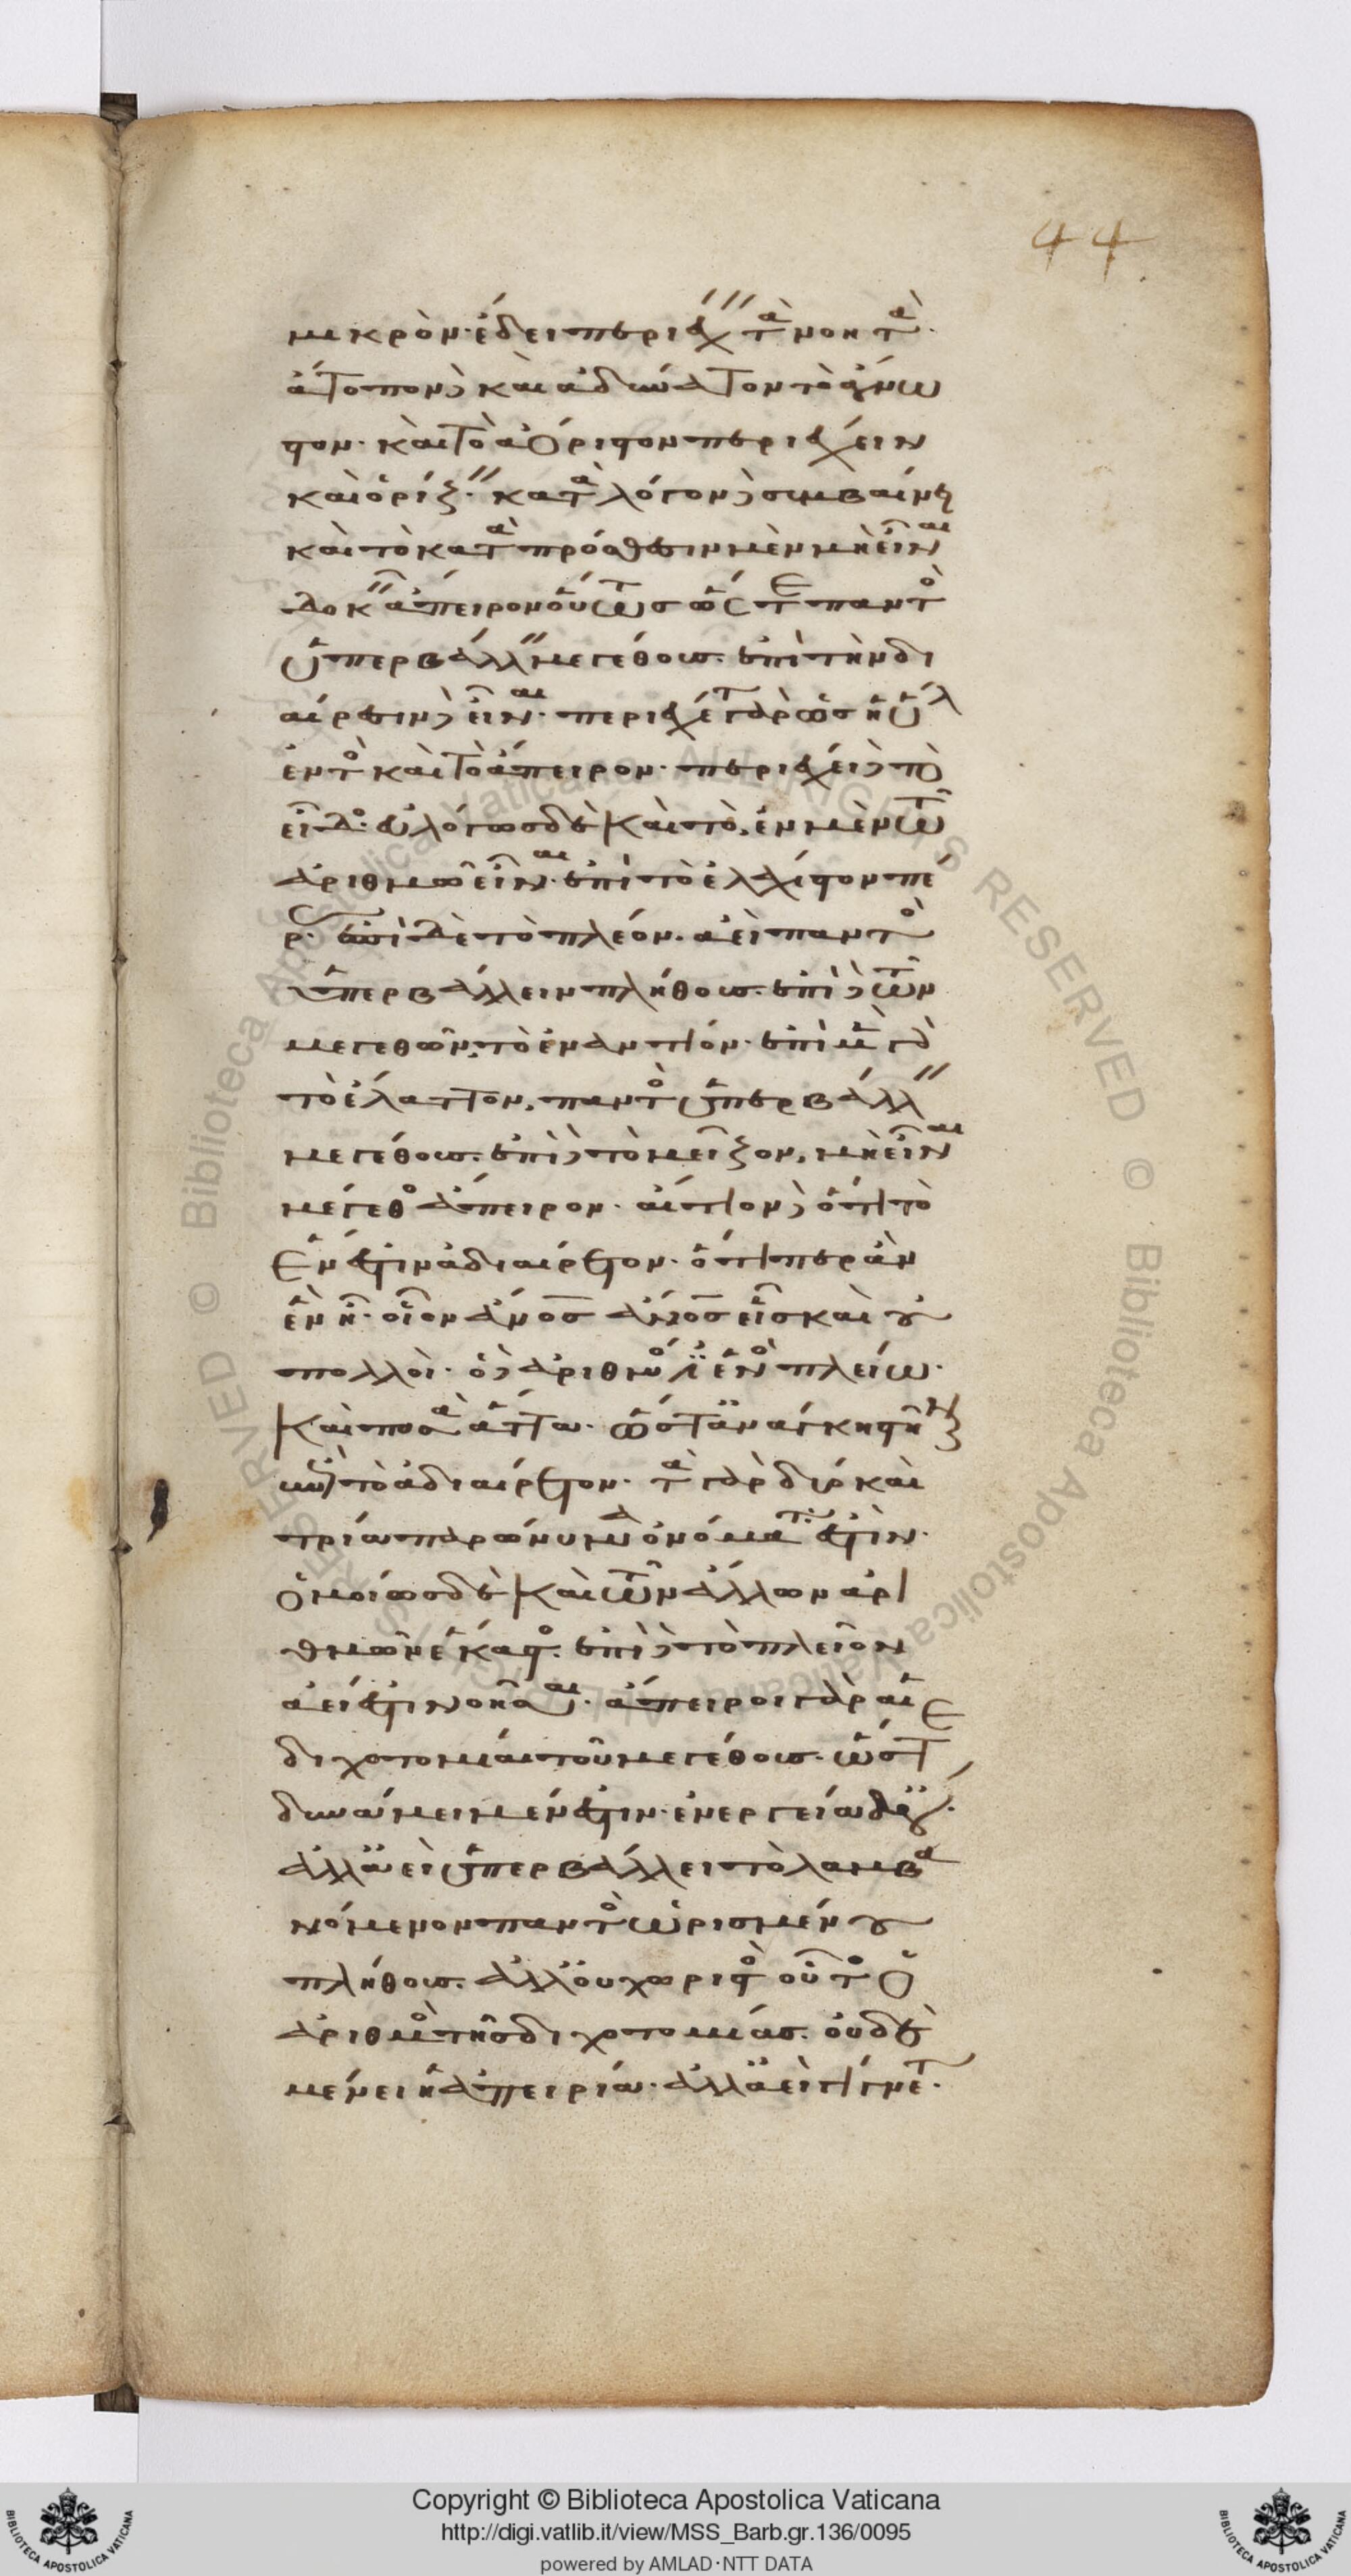 μικρὸν· ἔδει περιέχειν τὰ νοητά·
ἄτοπον δὲ καὶ ἀδύνατον τὸ ἄγνω
στον· καὶ τὸ ἀόριστον περιέχειν
καὶ ὁρίζειν· κατὰ λόγον δὲ συμβαίνει
καὶ τὸ κατὰ πρόσθεσιν μὲν μὴ εἶναι
δοκεῖν ἄπειρον οὕτως ὥστε παντὸς
ὑπερβάλλειν μεγέθους· ἐπὶ τὴν δι
αίρεσιν δὲ εἶναι· περιέχεται γὰρ ὡς ἡ ὕλη
ἐντὸς καὶ τὸ ἄπειρον· περιέχει δὲ τὸ
εἶδος· εὐλόγως δὲ καὶ τὸ, ἐν μὲν τῷ
ἀριθμῷ εἶναι· ἐπὶ τὸ ἐλάχιστον πέ
ρας· ἐπὶ δὲ τὸ πλέον· ἀεὶ παντὸς
ὑπερβάλλειν πλήθους· ἐπὶ δὲ τῶν
μεγεθῶν, τὸ ἐναντίον· ἐπὶ μὲν γὰρ
τὸ ἔλαττον, παντὸς ὑπερβάλλειν
μεγέθους· ἐπὶ δὲ τὸ μεῖζον, μὴ εἶναι
μέγεθος ἄπειρον· αἴτιον δὲ ὅτι τὸ
ἕν ἐστιν ἀδιαίρετον· ὅτι περ ἂν
ἓν ᾖ· οἷον ἄνος ἄνος εἷς καὶ οὐ
πολλοὶ· ὁ δὲ ἀριθμός ἐστιν ἑνὸς πλείω·
καὶ ποσὰ ἄττα· ὥστ' ἀνάγκη στῆναι
ἐπὶ τὸ ἀδιαίρετον· τὰ γὰρ δύο καὶ
τρία παρώνυμα ὀνόματά ἐστιν·
ὁμοίως δὲ καὶ τῶν ἄλλων ἀρι
θμῶν ἕκαστος· ἐπὶ δὲ τὸ πλεῖον
ἀεί ἐστι νοῆσαι· ἄπειροι γὰρ αἱ
διχοτομίαι τοῦ μεγέθους· ὥστε
δυνάμει μέν ἐστιν· ἐνεργείᾳ δ' οὔ·
ἀλλ' ἀεὶ ὑπερβάλλει τὸ λαμβα
νόμενον παντὸς ὡρισμένου
πλήθους· ἀλλ' οὐ χωριστὸς οὗτος ὁ
ἀριθμὸς τῆς διχοτομίας· οὐδὲ
μένει ἡ ἀπειρία· ἀλλ' ἀεὶ γίγνεται·
44
Copyright © Biblioteca Apostolica Vaticana
http://digi.vatlib.it/view/MSS_Barb.gr.136/0095
powered by AMLAD·NTT DATA